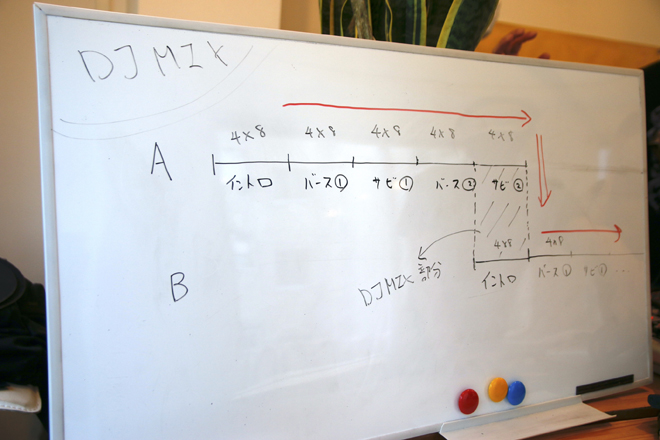 DJ MIX
4×8 4×8 4×8 4×8 4×8
A
イントロ バース① サビ① バース② サビ②
4×8 4×8
DJ MIX 部分
B
イントロ バース① サビ① ...